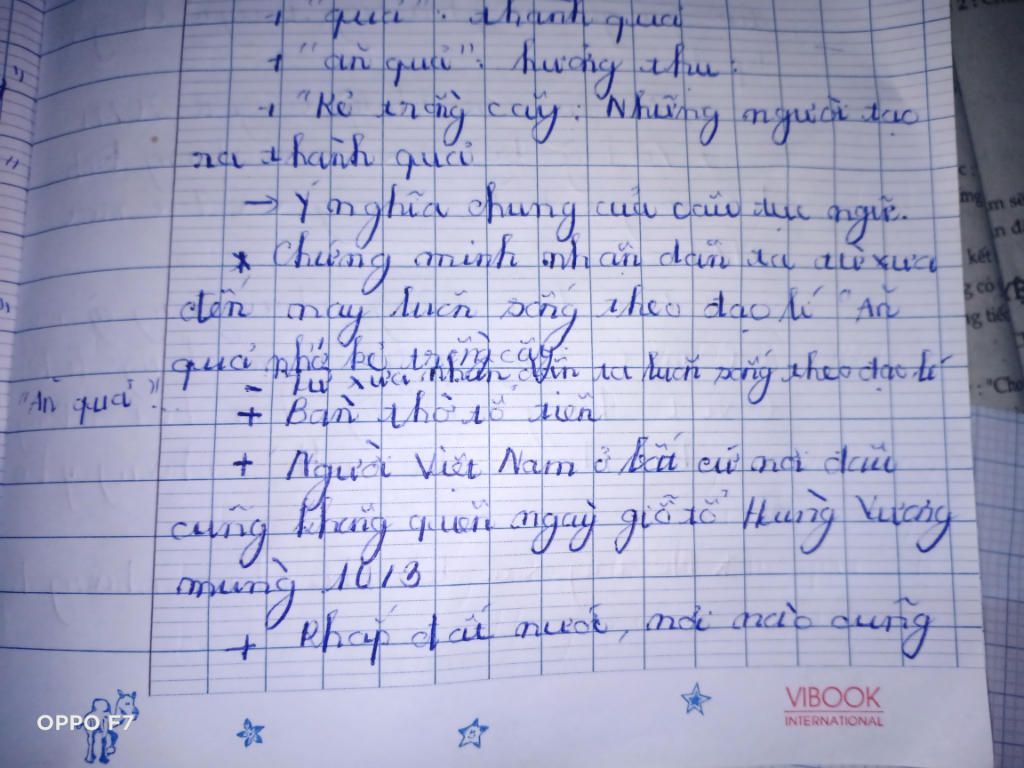 + "quả": thành quả
+ "ăn quả": hưởng thụ.
+ "Kẻ trồng cây: Những người tạo
ra thành quả
→ Ý nghĩa chung của câu tục ngữ.
* Chứng minh nhân dân ta từ xưa
đến nay luôn sống theo đạo lí "Ăn
quả nhớ kẻ trồng cây
- Từ xưa, nhân dân ta luôn sống theo đạo lí
"Ăn quả"!.
+ Bàn thờ tổ tiên
+ Người Việt Nam ở bất cứ nơi đâu
cũng không quên ngày giỗ tổ Hùng Vương
mùng 10/3
+ Khắp đất nước, nơi nào cũng
VIBOOK
INTERNATIONAL
OPPO F7
kết
"Cho